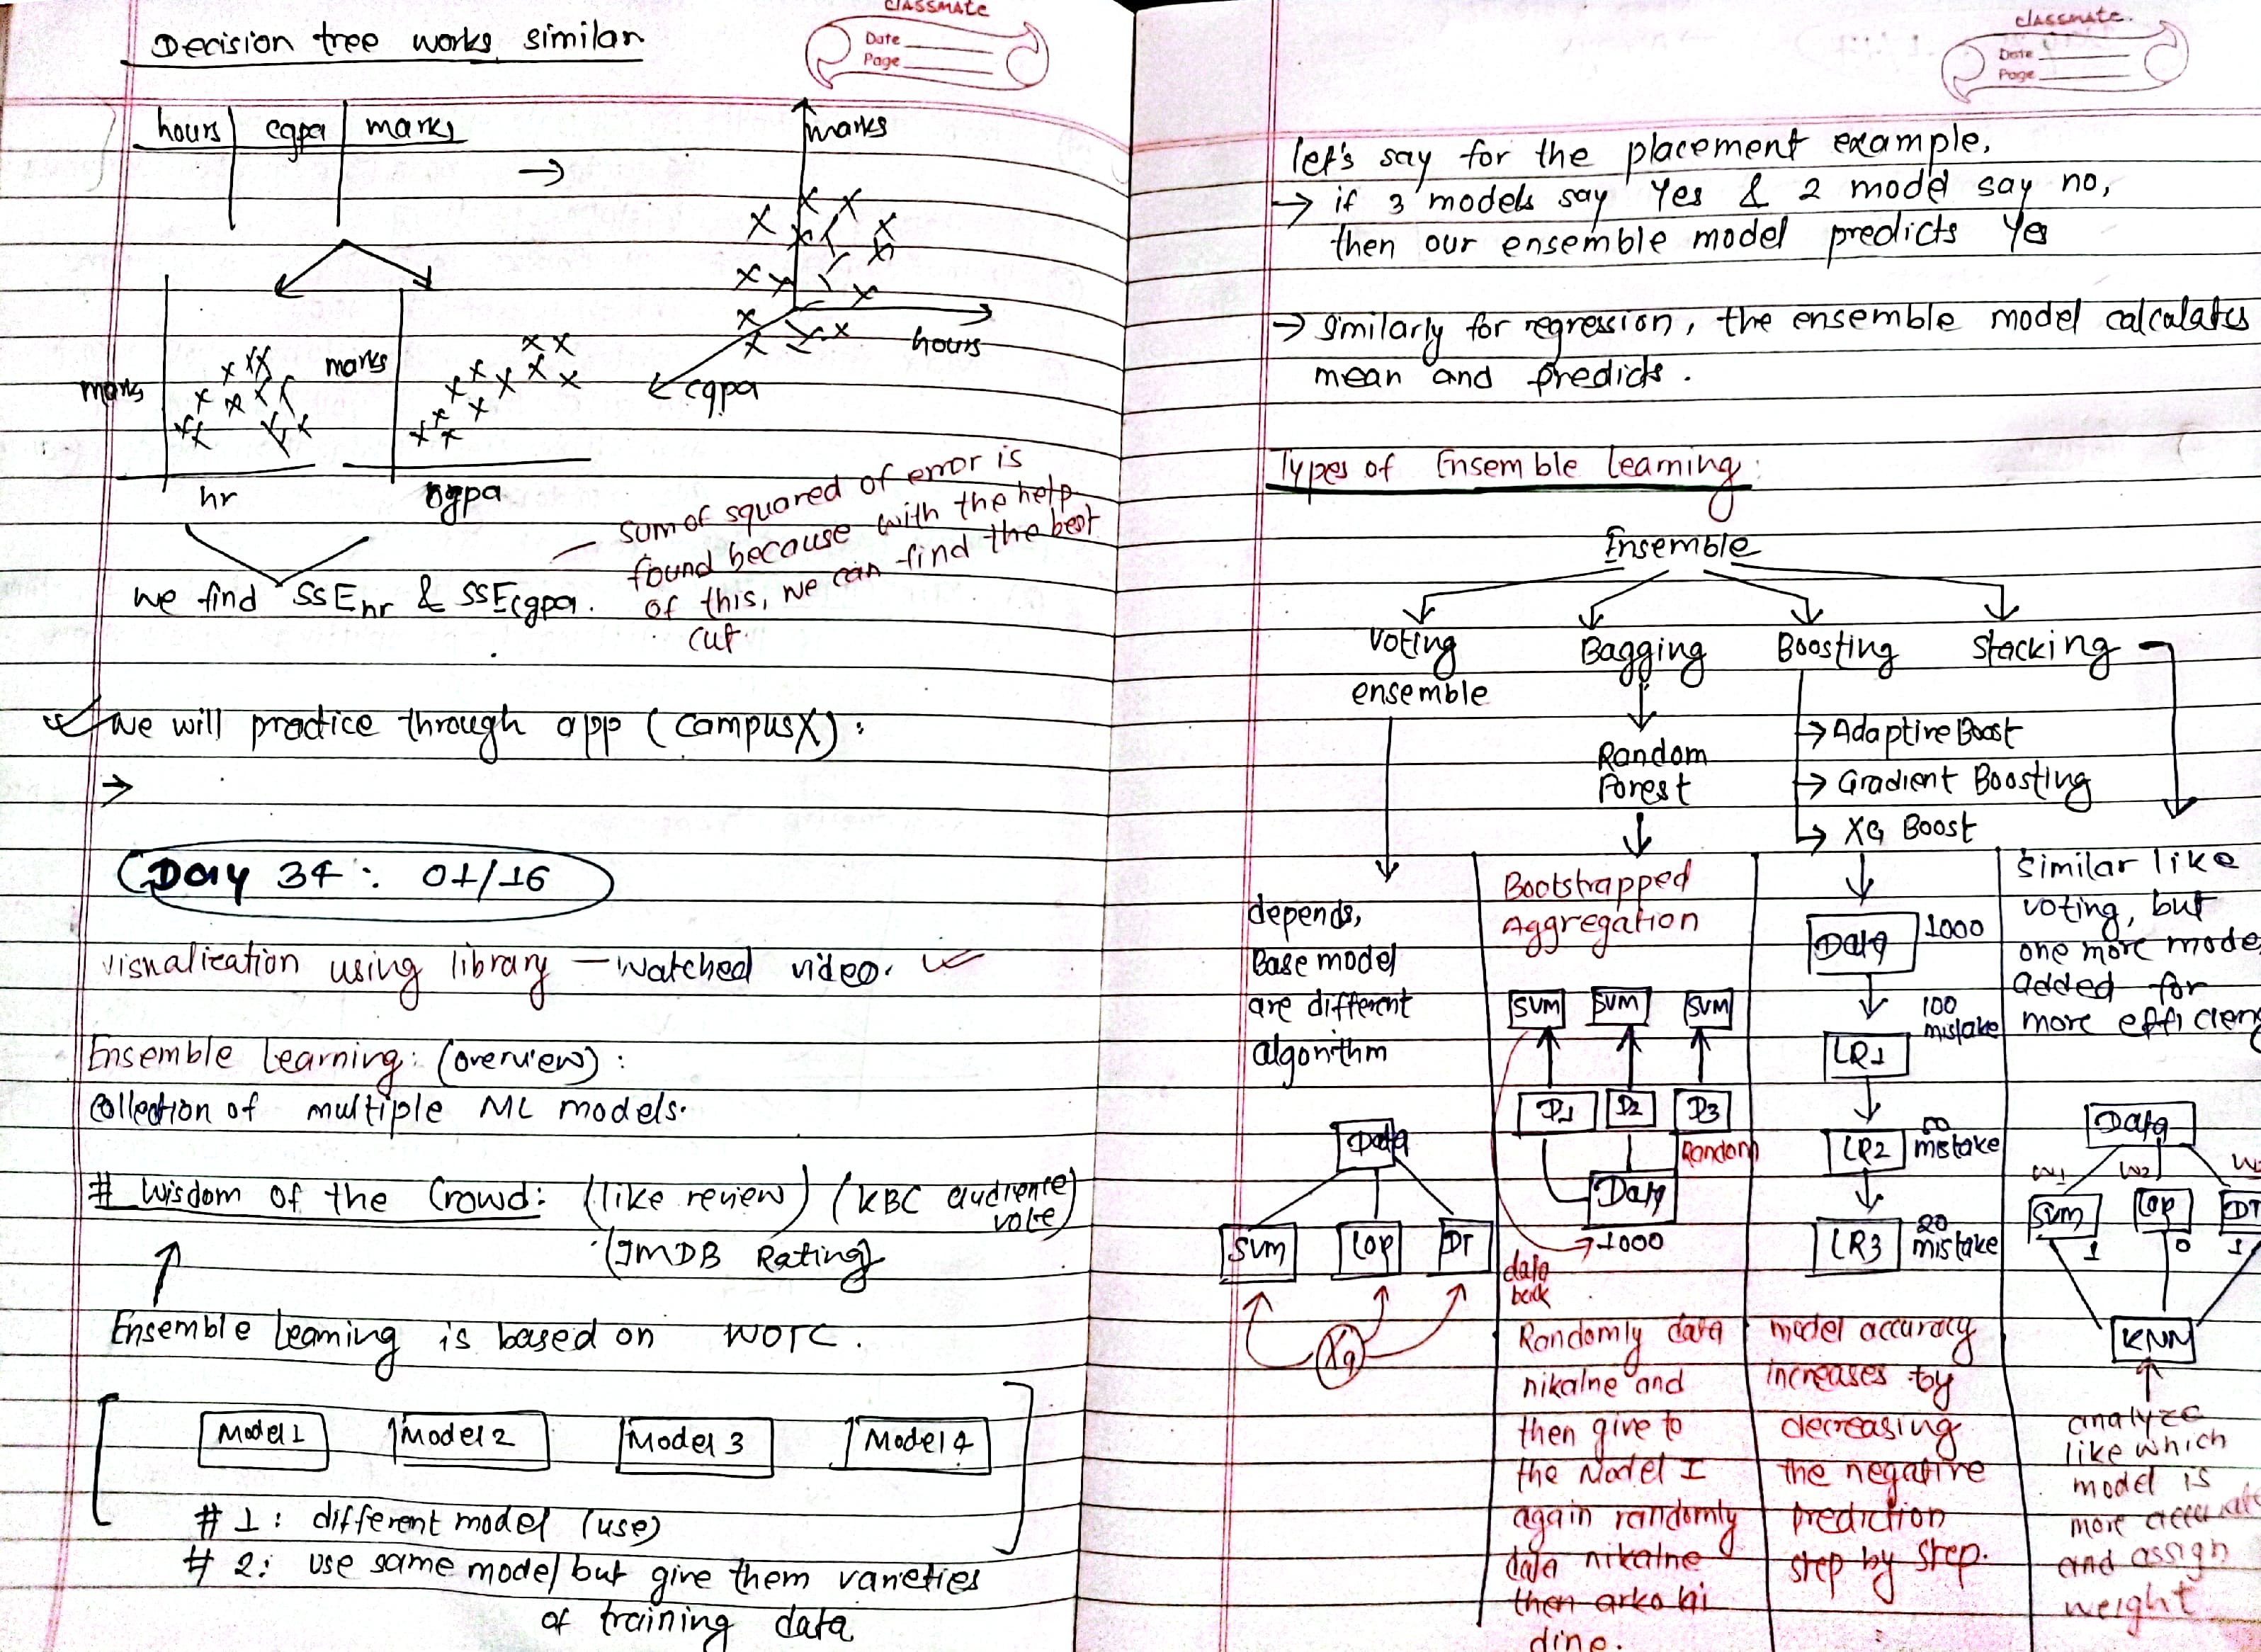 classmate
Date
Page
Decision tree works similar
hours cgpa marks
→
marks
hours
cgpa
marks
hr
marks
cgpa
we find SSEhr & SSEcgpa.
sum of squared of error is
found because with the help
of this, we can find the best
cut
we will practice through app (campusX):
→
Day 34: 01/16
visualization using library — watched video.
Ensemble Learning: (overview):
collection of multiple ML models.
# Wisdom of the Crowd: (like review) (KBC audience vote)
(IMDB Rating)
Ensemble Learning is based on WOTC.
Model 1 Model 2 Model 3 Model 4
# 1: different model (use)
# 2: use same model but give them varieties
of training data
classmate
Date
Page
let's say for the placement example,
→ if 3 models say Yes & 2 model say no,
then our ensemble model predicts Yes
→ similarly for regression, the ensemble model calculates
mean and predicts.
Types of Ensemble learning:
Ensemble
Voting Bagging Boosting Stacking
ensemble
Random
Forest
→ Adaptive Boost
→ Gradient Boosting
→ XG Boost
depends,
Base model
are different
algorithm
Data
SVM LOR DT
Xq
Bootstrapped
Aggregation
SVM SVM SVM
D1 D2 D3
Random
Data
1000
data
back
Randomly data
nikalne and
then give to
the Model I
again randomly
data nikalne
then arko lai
dine.
Data 1000
100
mistake
LR1
LR2 50
mistake
LR3 20
mistake
model accuracy
increases by
decreasing
the negative
prediction
step by step.
similar like
voting, but
one more mode
added for
more efficien
Data
W1 W2 W
SVM LOR DT
1 0 1
KNN
analyze
like which
model is
more accurate
and assign
weight